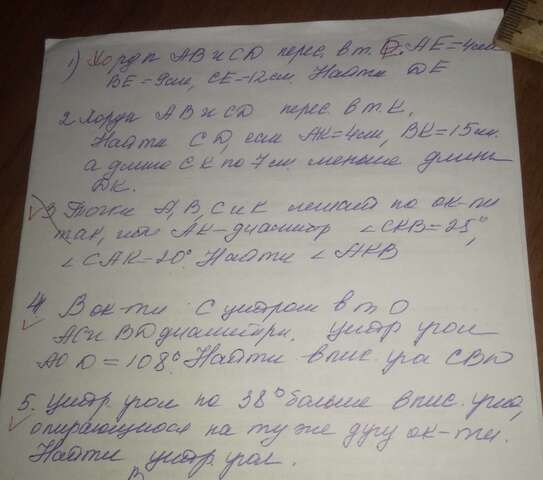 1) Хорды AB и CD перес. в т. E. AE=4см
BE=9см, CE=12см. Найти DE
2 Хорды AB и CD перес. в т. K.
Найти CD, если AK=4см, BK=15см.
а длина CK на 7см меньше длины
DK.
3 Точки A, B, C и K лежат на ок-ти
так, что AK-диаметр ∠CKB=25°,
∠CAK=20°. Найти ∠AKB
4 В ок-ти с центром в т. O
AC и BD диаметры. центр угол
AOD=108°. Найти впис. уг. CBD
5. Центр. угол на 38° больше впис. угла,
опирающегося на ту же дугу ок-ти.
Найти центр. угол.